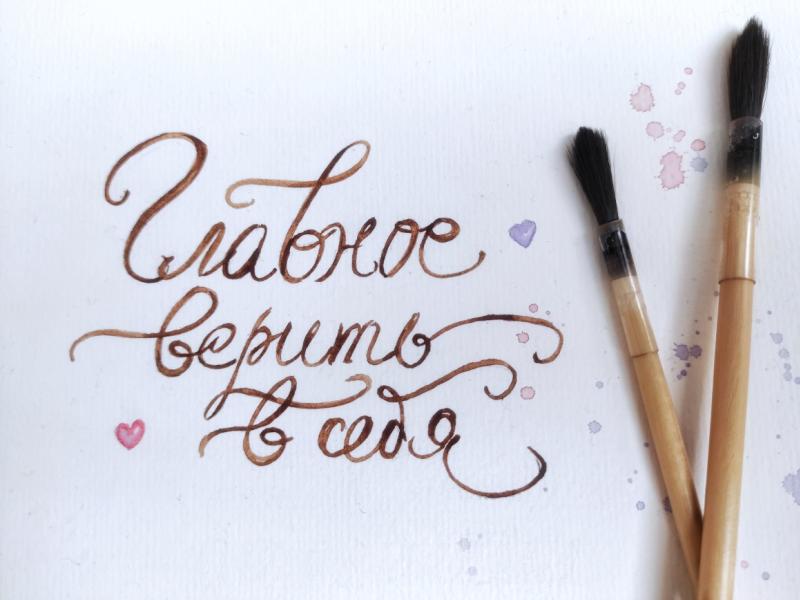 Главное
верить
в себя